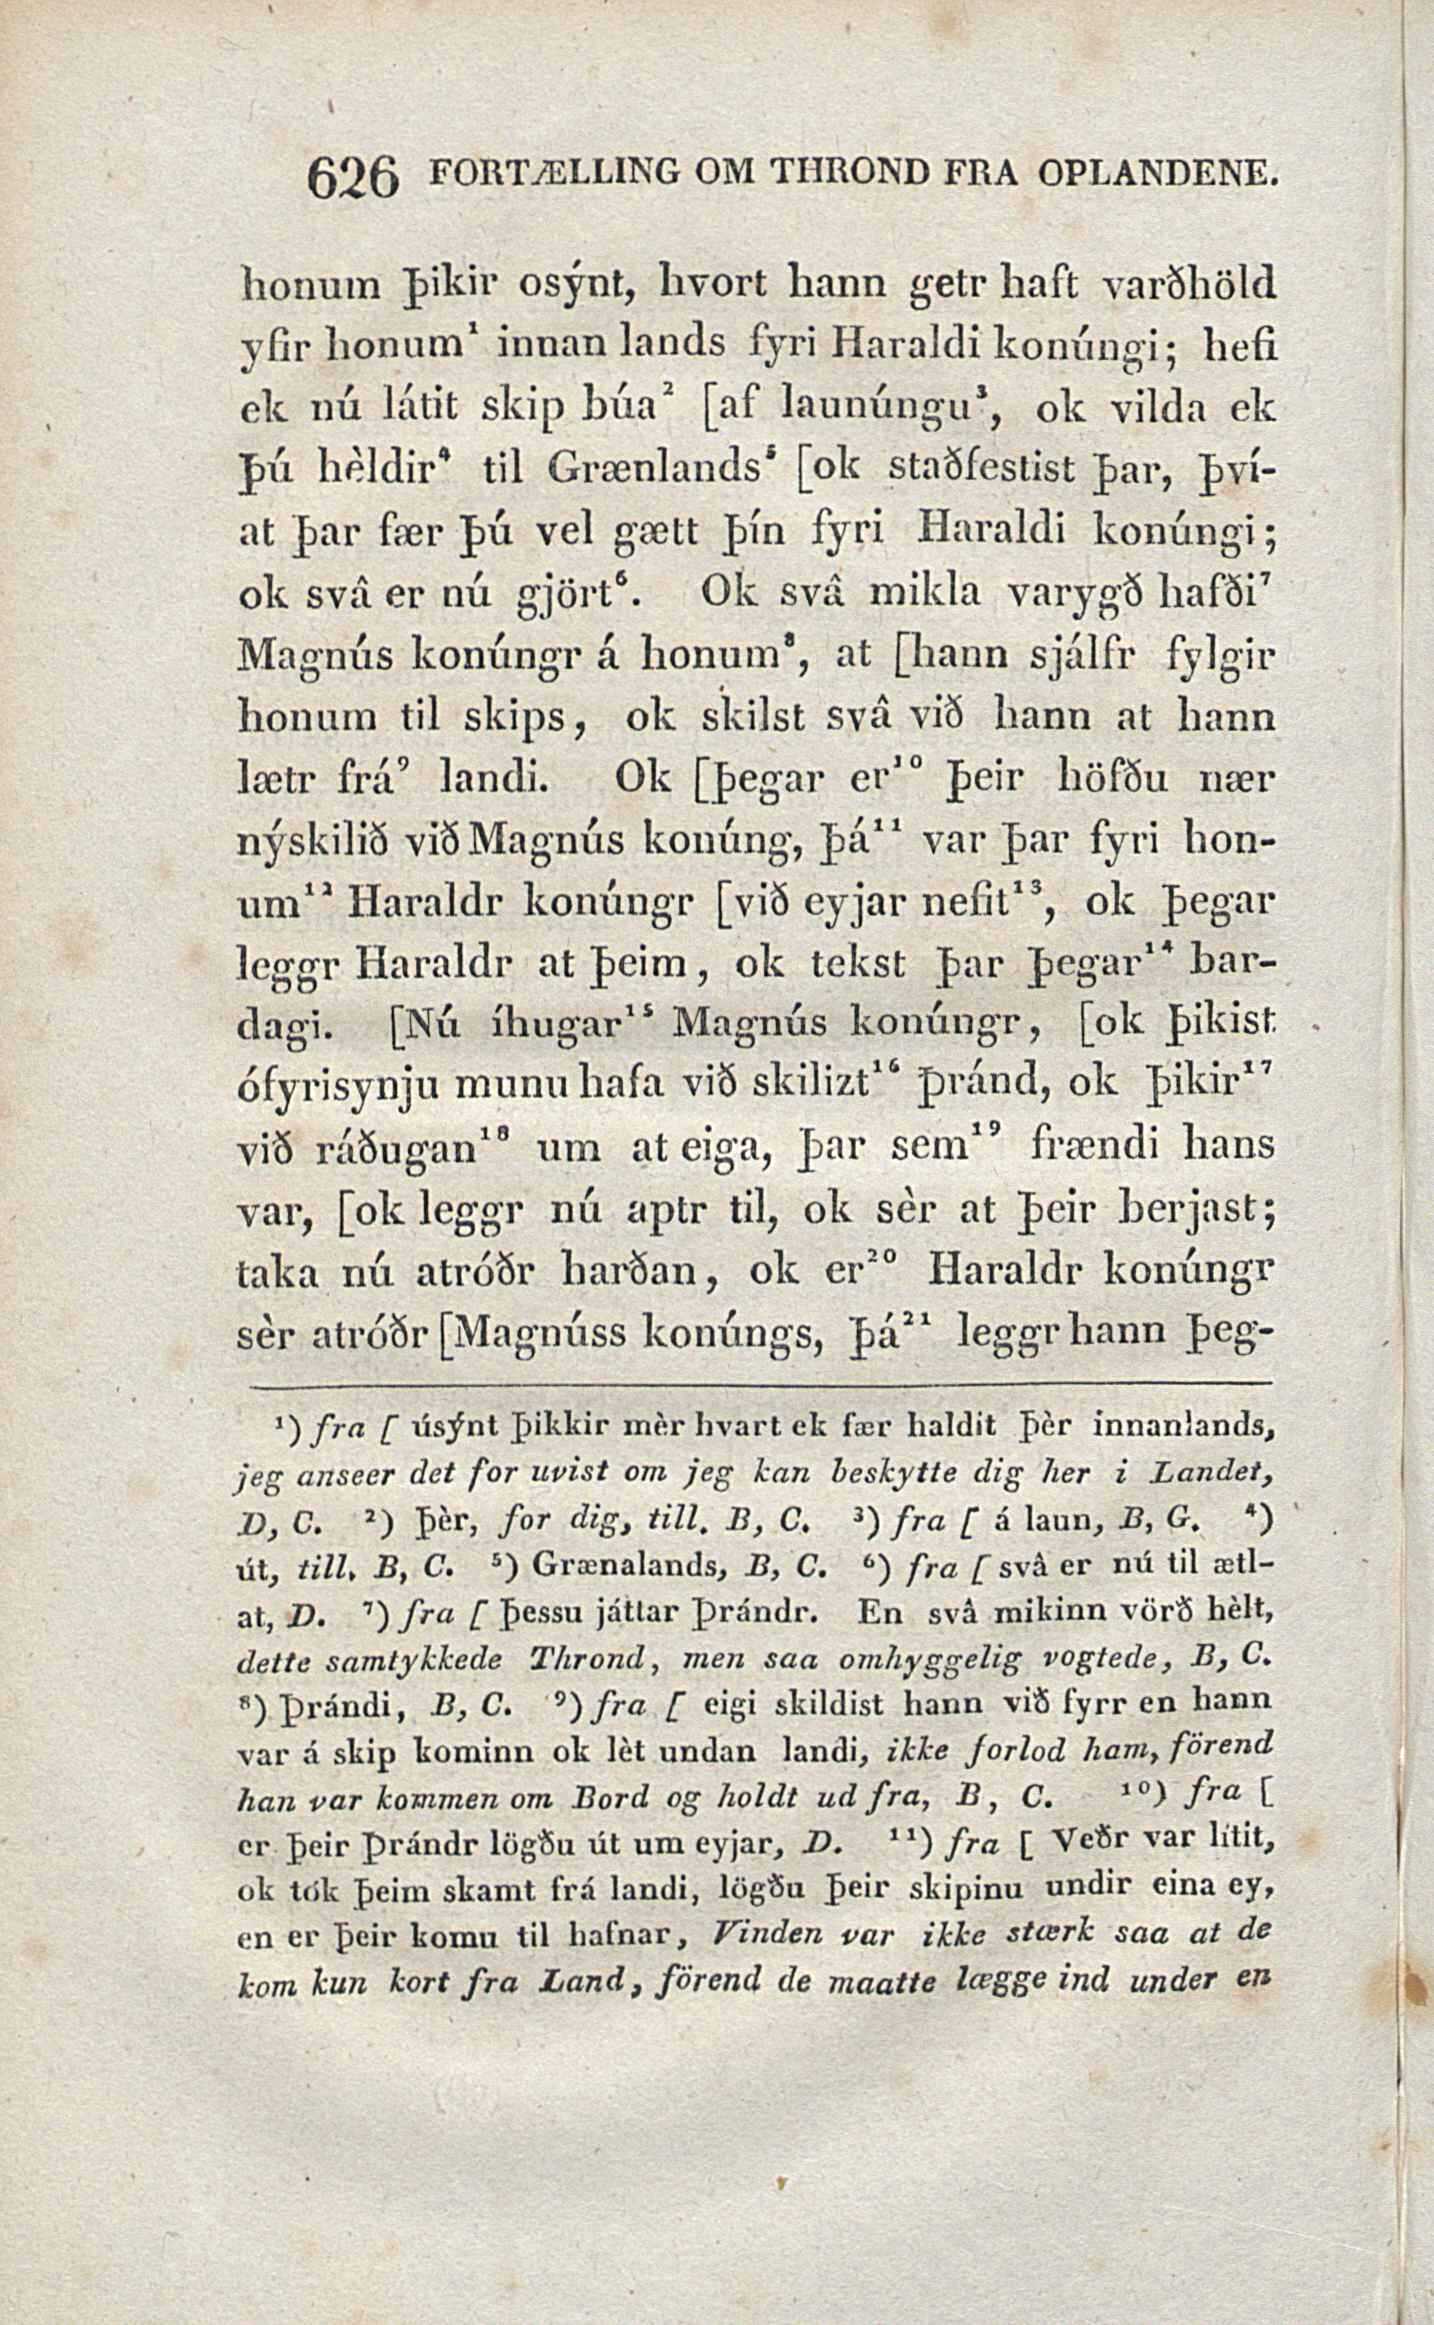 626 FORTÆLLING OM THROND FRA OPLANDENE.
honum þikir osýnt, hvort hann getr haft varðhöld
yfir honum¹ innan lands fyri Haraldi konúngi; hefi
ek nú látit skip búa² [af launúngu³, ok vilda ek
þú hèldir⁴ til Grænlands⁵ [ok staðfestist þar, því-
at þar fær þú vel gætt þín fyri Haraldi konúngi;
ok svâ er nú gjört⁶. Ok svâ mikla varygð hafði⁷
Magnús konúngr á honum⁸, at [hann sjálfr fylgir
honum til skips, ok skilst svâ við hann at hann
lætr frá⁹ landi. Ok [þegar er¹⁰ þeir höfðu nær
nýskilið við Magnús konúng, þá¹¹ var þar fyri hon-
um¹² Haraldr konúngr [við eyjar nefit¹³, ok þegar
leggr Haraldr at þeim, ok tekst þar þegar¹⁴ bar-
dagi. [Nú íhugar¹⁵ Magnús konúngr, [ok þikist
ófyrisynju munu hafa við skilizt¹⁶ Þránd, ok þikir¹⁷
við ráðugan¹⁸ um at eiga, þar sem¹⁹ frændi hans
var, [ok leggr nú aptr til, ok sèr at þeir berjast;
taka nú atróðr harðan, ok er²⁰ Haraldr konúngr
sèr atróðr [Magnúss konúngs, þá²¹ leggr hann þeg-
¹) fra [ úsýnt þikkir mèr hvart ek fær haldit þèr innanlands,
jeg anseer det for uvist om jeg kan beskytte dig her i Landet,
D, C. ²) þèr, for dig, till. B, C. ³) fra [ á laun, B, G. ⁴)
út, till. B, C. ⁵) Grænalands, B, C. ⁶) fra [ svâ er nú til ætl-
at, D. ⁷) fra [ þessu játtar Þrándr. En svâ mikinn vörð hèlt,
dette samtykkede Thrond, men saa omhyggelig vogtede, B, C.
⁸) Þrándi, B, C. ⁹) fra [ eigi skildist hann við fyrr en hann
var á skip kominn ok lèt undan landi, ikke forlod ham, förend
han var kommen om Bord og holdt ud fra, B, C. ¹⁰) fra [
er þeir Þrándr lögðu út um eyjar, D. ¹¹) fra [ Veðr var lítit,
ok tók þeim skamt frá landi, lögðu þeir skipinu undir eina ey,
en er þeir komu til hafnar, Vinden var ikke stærk saa at de
kom kun kort fra Land, förend de maatte lægge ind under en